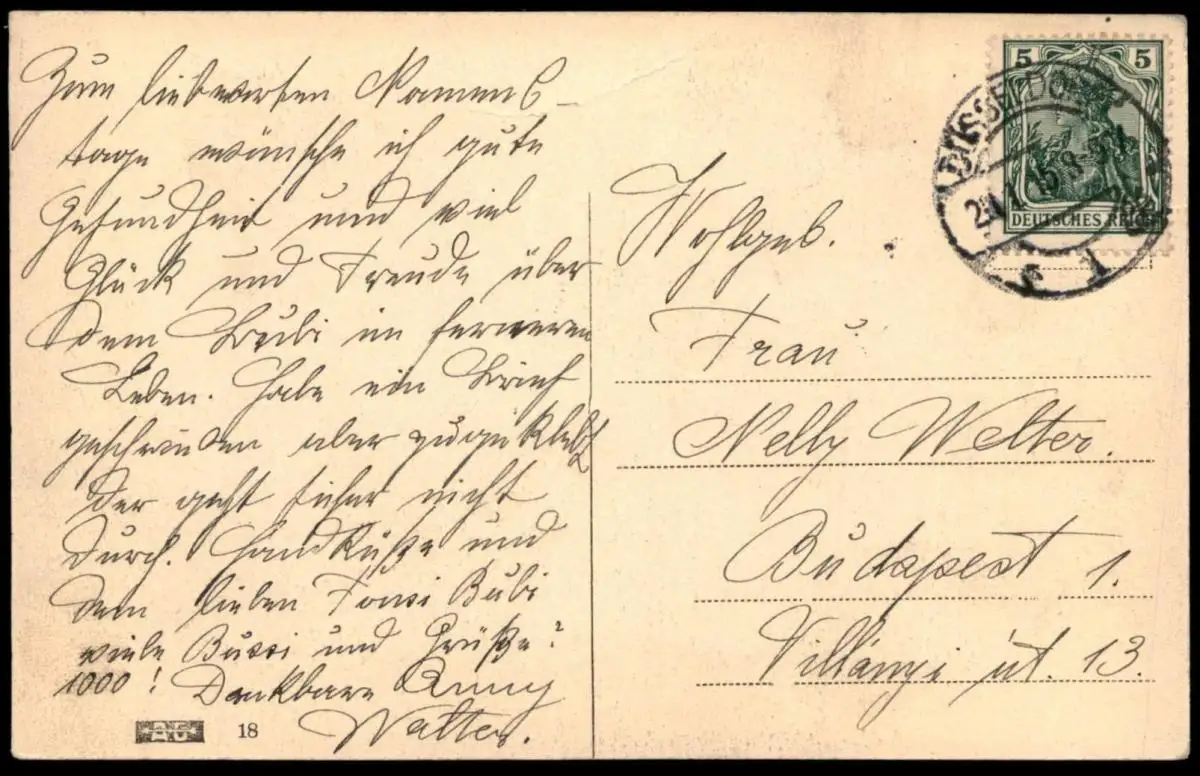 Zum liebwerten Namens-
tage wünsche ich gute
Gesundheit und viel
Glück und Freude über
dem Bubi im ferneren
Leben. Habe ein Brief
geschrieben aber zugeklebt
der geht sicher nicht
durch. Handküße und
dem lieben Fonsi Bubi
viele Bussi und Grüße
1000! Dankbare
Walter.
18
5 5
DEUTSCHES REICH
DÜSSELDORF
Wohlgeb.
Frau
Nelly Welter.
Budapest 1.
Villányi út. 13.